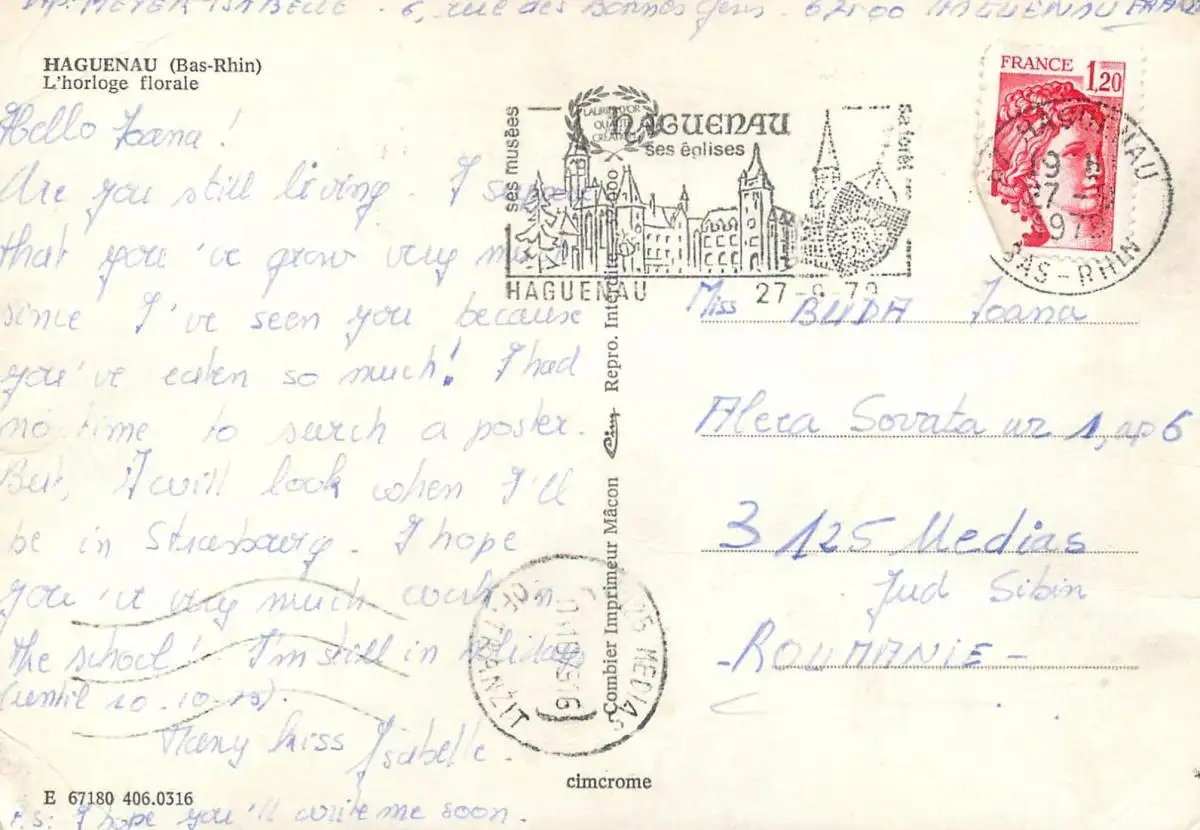 MEYER ISABELLE - 6, rue des Bonnes Gens - HAGUENAU FRANCE
HAGUENAU (Bas-Rhin)
L'horloge florale
Hello Ioana!
Are you still living. I
that you've grow very
since I've seen you because
you've eaten so much! I had
no time to serch a poster.
But, I will look when I'll
be in Strasbourg. I hope
you've very much work in
the school! I'm still in holidays
(until 10.10.79).
Many kiss Isabelle.
P.S: I hope you'll write me soon.
E 67180 406.0316
ses musées
LAURIER D'OR
HAGUENAU
ses églises
sa forêt
HAGUENAU 27-9-79
FRANCE 1,20
HAGUENAU
19 H
27
1979
BAS-RHIN
Combier Imprimeur Mâcon Cim Repro. Interdite
MEDIAS
OF. TRANZIT
cimcrome
Miss BUDA Ioana
Aleea Sovata nr 1, ap 6
3125 Medias
Jud Sibiu
-ROUMANIE-